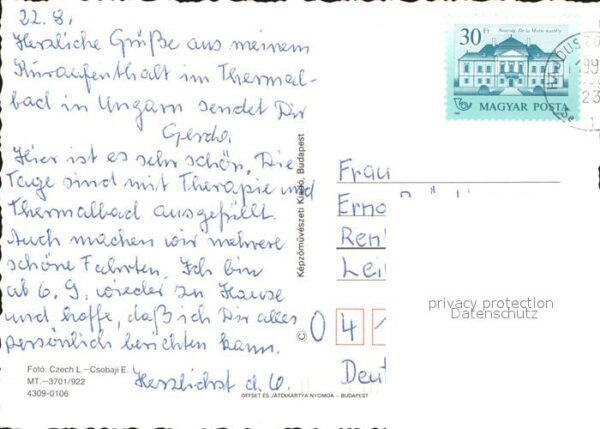 22.8.
Herzliche Grüße aus meinem
Kuraufenthalt im Thermal-
bad in Ungarn sendet Dir
Gerda.
Hier ist es sehr schön. Die
Tage sind mit Therapie und
Thermalbad ausgefüllt.
Auch machen wir mehrere
schöne Fahrten. Ich bin
ab 6.9. wieder zu Hause
und hoffe, daß ich Dir alles
persönlich berichten kann.
Herzlichst d. G.
Fotó: Czech L.–Csobaji E.
MT.–3701/922
4309-0106
Képzőművészeti Kiadó, Budapest
©
OFFSET ÉS JÁTÉKKÁRTYA NYOMDA – BUDAPEST
30Ft
MAGYAR POSTA
Frau
0 4
privacy protection
Datenschutz